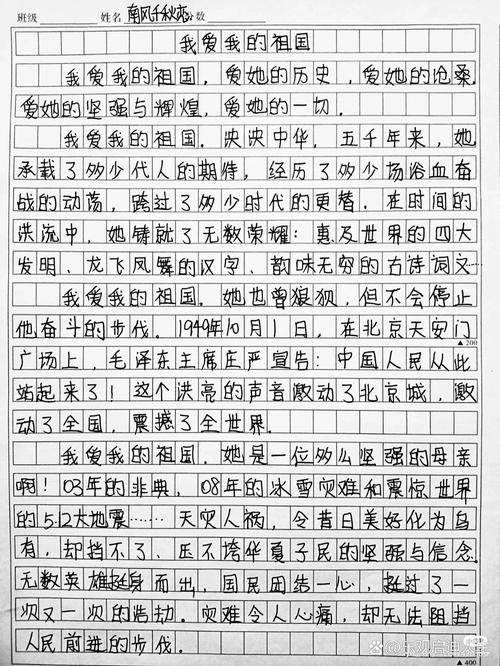 班级 姓名 南风千秋恋 分数
我爱我的祖国
我爱我的祖国，爱她的历史，爱她的沧桑.
爱她的坚强与辉煌，爱她的一切.
我爱我的祖国.泱泱中华，五千年来，她
承载了多少代人的期待，经历了多少场浴血奋
战的动荡，跨过了多少时代的更替.在时间的
洪流中，她铸就了无数荣耀：惠及世界的四大
发明、龙飞凤舞的汉字、韵味无穷的古诗词文…
我爱我的祖国.她也曾狼狈，但不会停止
他奋斗的步伐.1949年10月1日，在北京天安门
▲200
广场上，毛泽东主席庄严宣告：中国人民从此
站起来了！这个洪亮的声音激动了北京城，激
动了全国，震撼了全世界.
我爱我的祖国.她是一位多么坚强的母亲
啊！03年的非典，08年的冰雪灾难和震惊世界
的5.12大地震……天灾人祸，令昔日美好化为乌
有，却挡不了、压不垮华夏子民的坚强与信念.
无数英雄挺身而出，国民团结一心，挺过了一
次又一次的浩劫.灾难令人心痛，却无法阻挡
人民前进的步伐.
▲400